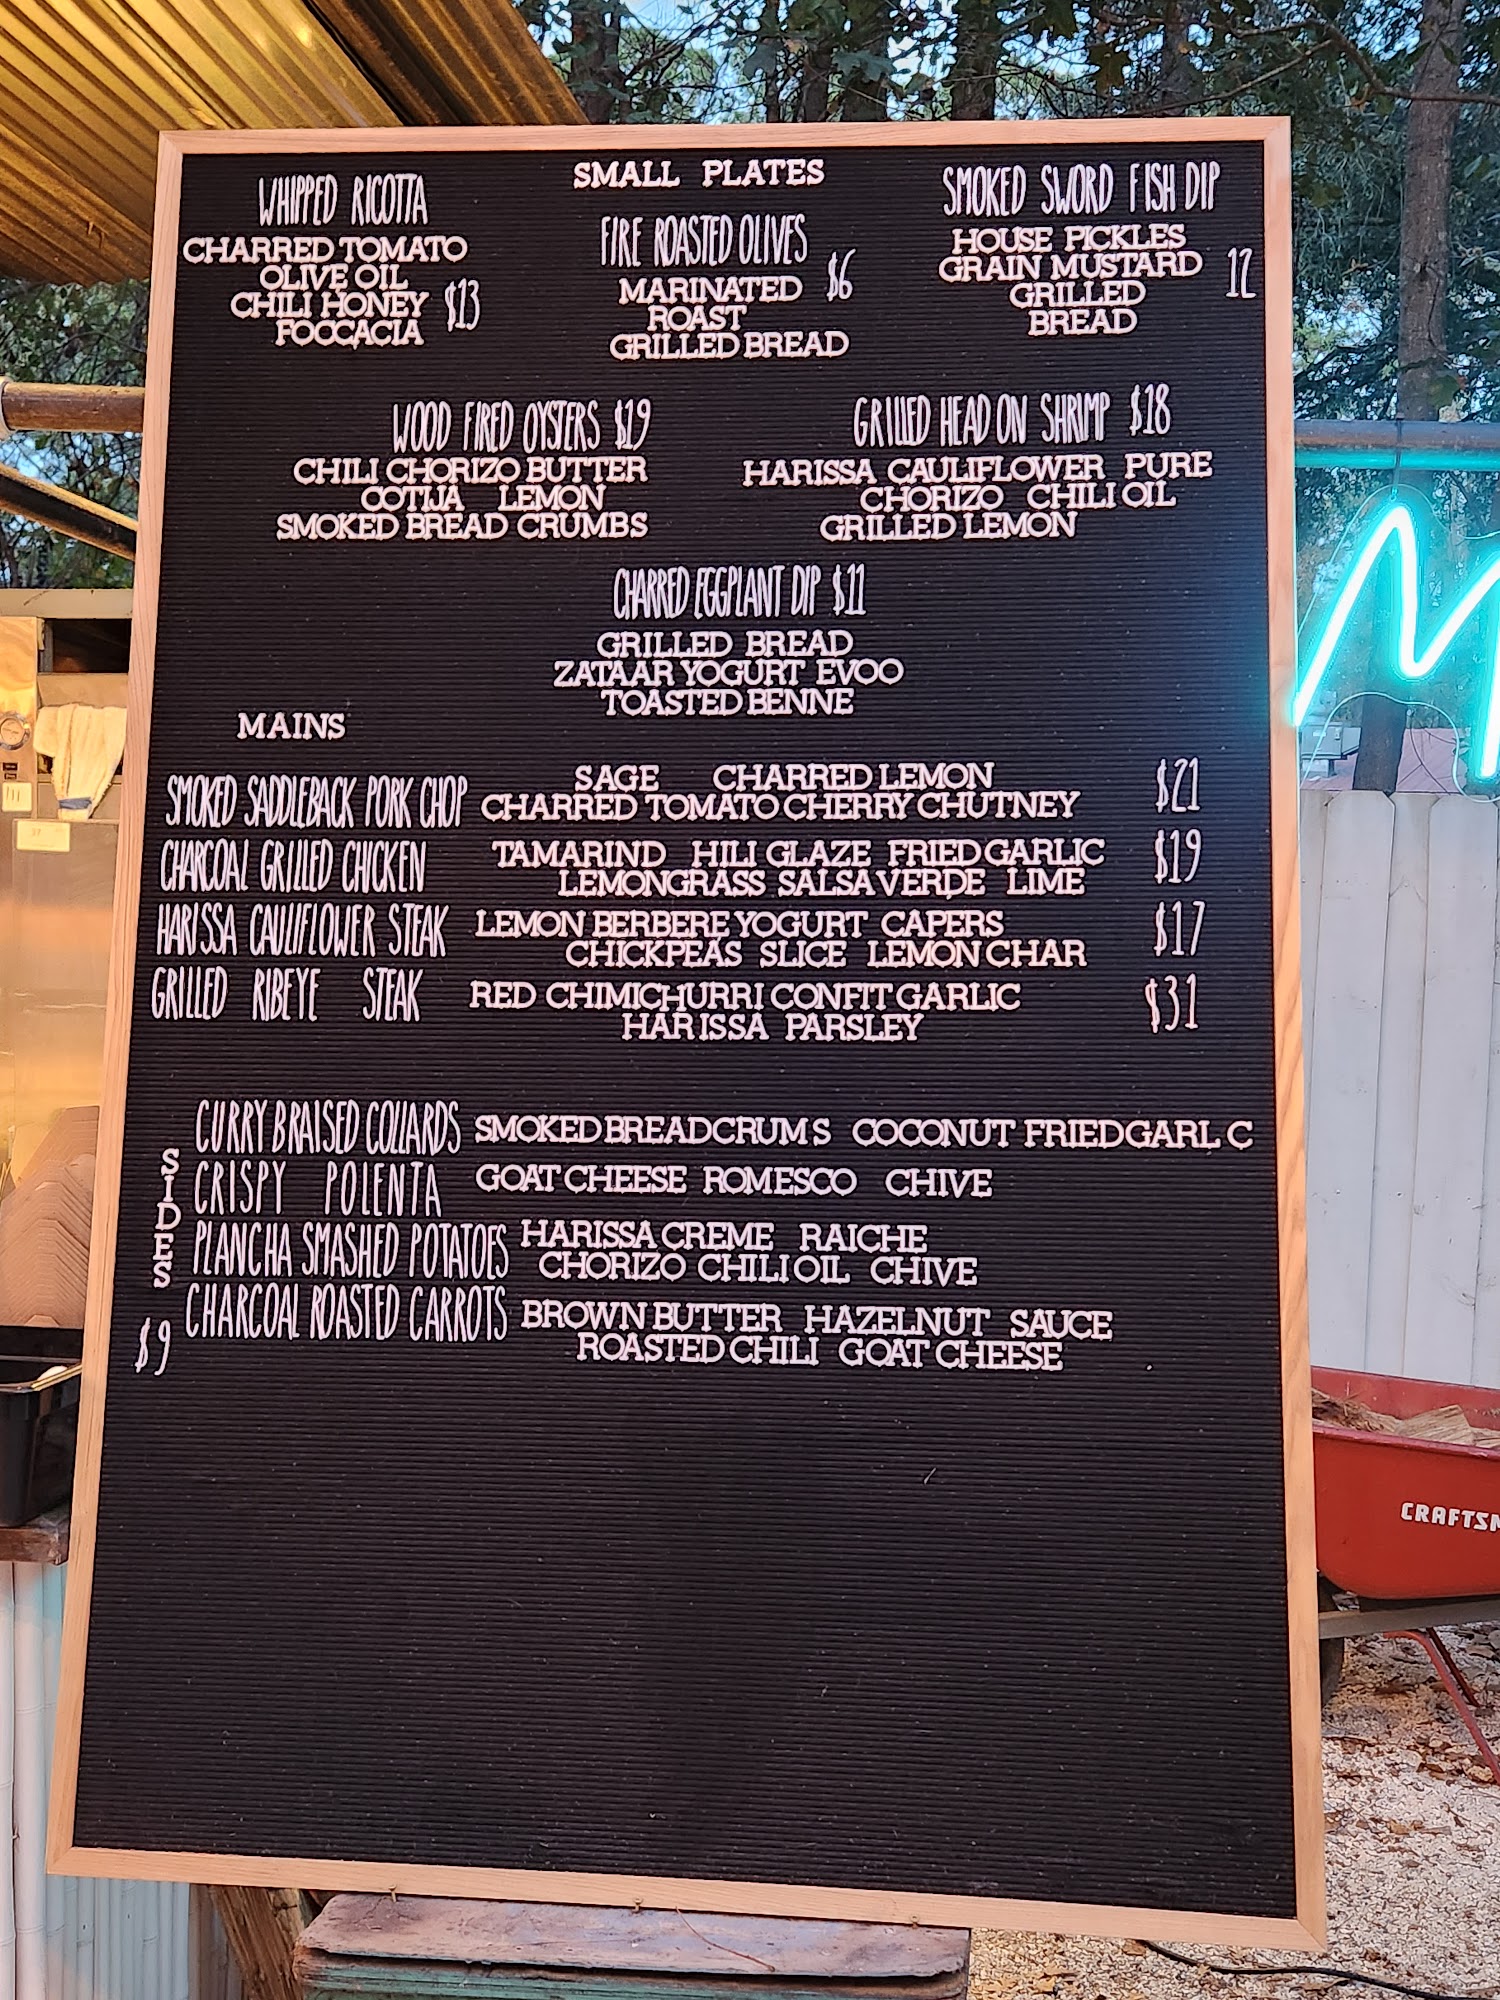 SMALL PLATES
WHIPPED RICOTTA
CHARRED TOMATO
OLIVE OIL
CHILI HONEY $13
FOCCACIA
FIRE ROASTED OLIVES
MARINATED $6
ROAST
GRILLED BREAD
SMOKED SWORD FISH DIP
HOUSE PICKLES
GRAIN MUSTARD 12
GRILLED
BREAD
WOOD FIRED OYSTERS $19
CHILI CHORIZO BUTTER
COTIJA LEMON
SMOKED BREAD CRUMBS
GRILLED HEAD ON SHRIMP $18
HARISSA CAULIFLOWER PURE
CHORIZO CHILI OIL
GRILLED LEMON
CHARRED EGGPLANT DIP $11
GRILLED BREAD
ZATAAR YOGURT EVOO
TOASTED BENNE
MAINS
SMOKED SADDLEBACK PORK CHOP SAGE CHARRED LEMON $21
CHARRED TOMATO CHERRY CHUTNEY
CHARCOAL GRILLED CHICKEN TAMARIND HILI GLAZE FRIED GARLIC $19
LEMONGRASS SALSA VERDE LIME
HARISSA CAULIFLOWER STEAK LEMON BERBERE YOGURT CAPERS $17
CHICKPEAS SLICE LEMON CHAR
GRILLED RIBEYE STEAK RED CHIMICHURRI CONFIT GARLIC $31
HARISSA PARSLEY
SIDES
$9
CURRY BRAISED COLLARDS SMOKED BREADCRUM S COCONUT FRIED GARL C
CRISPY POLENTA GOAT CHEESE ROMESCO CHIVE
PLANCHA SMASHED POTATOES HARISSA CREME RAICHE
CHORIZO CHILI OIL CHIVE
CHARCOAL ROASTED CARROTS BROWN BUTTER HAZELNUT SAUCE
ROASTED CHILI GOAT CHEESE
CRAFTSM